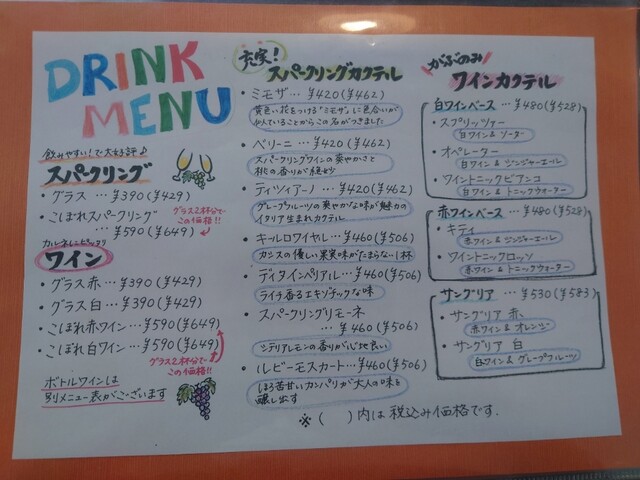 DRINK
MENU
飲みやすい!で大好評♪
スパークリング
・グラス … ¥390 (¥429)
・こぼれスパークリング
… ¥590 (¥649)
グラス2杯分で
この価格!!
カルネレシピッタリ
ワイン
・グラス赤 … ¥390 (¥429)
・グラス白 … ¥390 (¥429)
・こぼれ赤ワイン … ¥590 (¥649)
・こぼれ白ワイン … ¥590 (¥649)
グラス2杯分で
この価格!!
ボトルワインは
別メニュー表がございます
充実!
スパークリングカクテル
・ミモザ … ¥420 (¥462)
黄色い花をつける「ミモザ」に色合いが
似ていることからこの名がつきました
・ベリーニ … ¥420 (¥462)
スパークリングワインの爽やかさと
桃の香りが絶妙
・ティツィアーノ … ¥420 (¥462)
グレープフルーツの爽やかな味が魅力の
イタリア生まれカクテル
・キールロワイヤル … ¥460 (¥506)
カシスの優しい果実味がたまらない1杯
・ディタインペリアル … ¥460 (¥506)
ライチ香るエキゾチックな味
・スパークリングリモーネ
… ¥460 (¥506)
シチリアレモンの香りが心地良い
・ルビーモスカート … ¥460 (¥506)
ほろ苦甘いカンパリが大人の味を
醸し出す
※( )内は税込み価格です.
がぶのみ
ワインカクテル
白ワインベース … ¥480 (¥528)
・スプリッツァー
白ワイン & ソーダ
・オペレーター
白ワイン & ジンジャーエール
・ワイントニックビアンコ
白ワイン & トニックウォーター
赤ワインベース … ¥480 (¥528)
・キティ
赤ワイン & ジンジャーエール
・ワイントニックロッソ
赤ワイン & トニックウォーター
サングリア … ¥530 (¥583)
・サングリア 赤
赤ワイン & オレンジ
・サングリア 白
白ワイン & グレープフルーツ